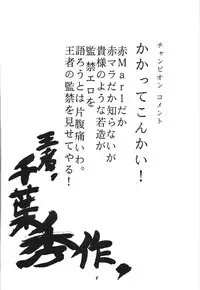 チャンピオン コメント
かかってこんかい!
赤Marlだか
赤マラだか知らないが
貴様のような若造が
監禁エロを
語ろうとは片腹痛いわ。
王者の監禁を見せてやる!
王者、
千葉秀作。